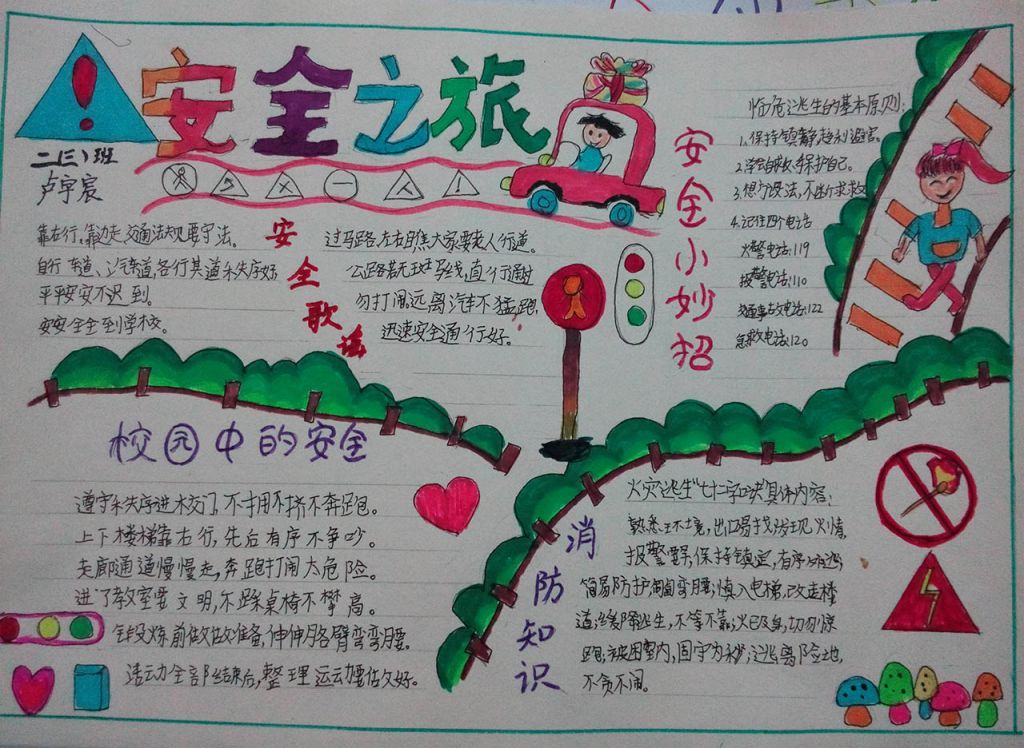 安全之旅
二(三)班
卢宇宸
安全歌谣
靠右行,靠边走,交通法规要守法。
自行车道、汽车道,各行其道秩序好
平平安安不迟到。
安安全全到学校。
过马路,左右瞧,大家要走人行道。
公路若无斑马线,直行通过
勿打闹,远离汽车不猛跑,
迅速安全通行好。
安全小妙招
临危逃生的基本原则:
1.保持镇静,趋利避害。
2.学会自救,保护自己。
3.想方设法,不断求救
4.记住四个电话
火警电话:119
报警电话:110
交通事故电话:122
急救电话:120
校园中的安全
遵守秩序进校门,不拥不挤不奔跑。
上下楼梯靠右行,先后有序不争吵。
走廊通道慢慢走,奔跑打闹太危险。
进了教室要文明,不踩桌椅不攀高。
锻炼前做做准备,伸伸胳臂弯弯腰。
活动全部结束后,整理运动要做好。
消防知识
火灾逃生“七十字口诀”具体内容:
熟悉环境,出口易找;发现火情,
报警要早;保持镇定,有序
简易防护,匍匐弯腰;慎入电梯,改走楼
道;缓降逃生,不等不靠;火已及身,切勿惊
跑;被困室内,固守为妙;逃离险地,
不贪不闹。